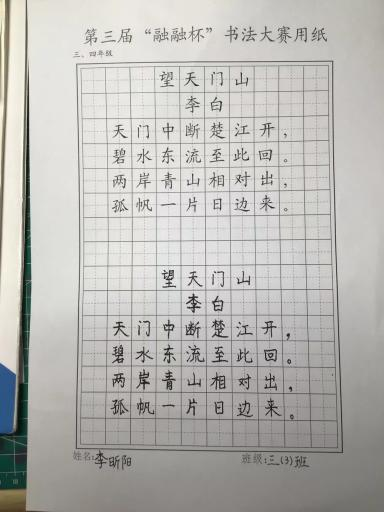 第三届“融融杯”书法大赛用纸
三、四年级
望天门山
李白
天门中断楚江开,
碧水东流至此回。
两岸青山相对出,
孤帆一片日边来。
望天门山
李白
天门中断楚江开,
碧水东流至此回。
两岸青山相对出,
孤帆一片日边来。
姓名:李昕阳 班级:三(3)班